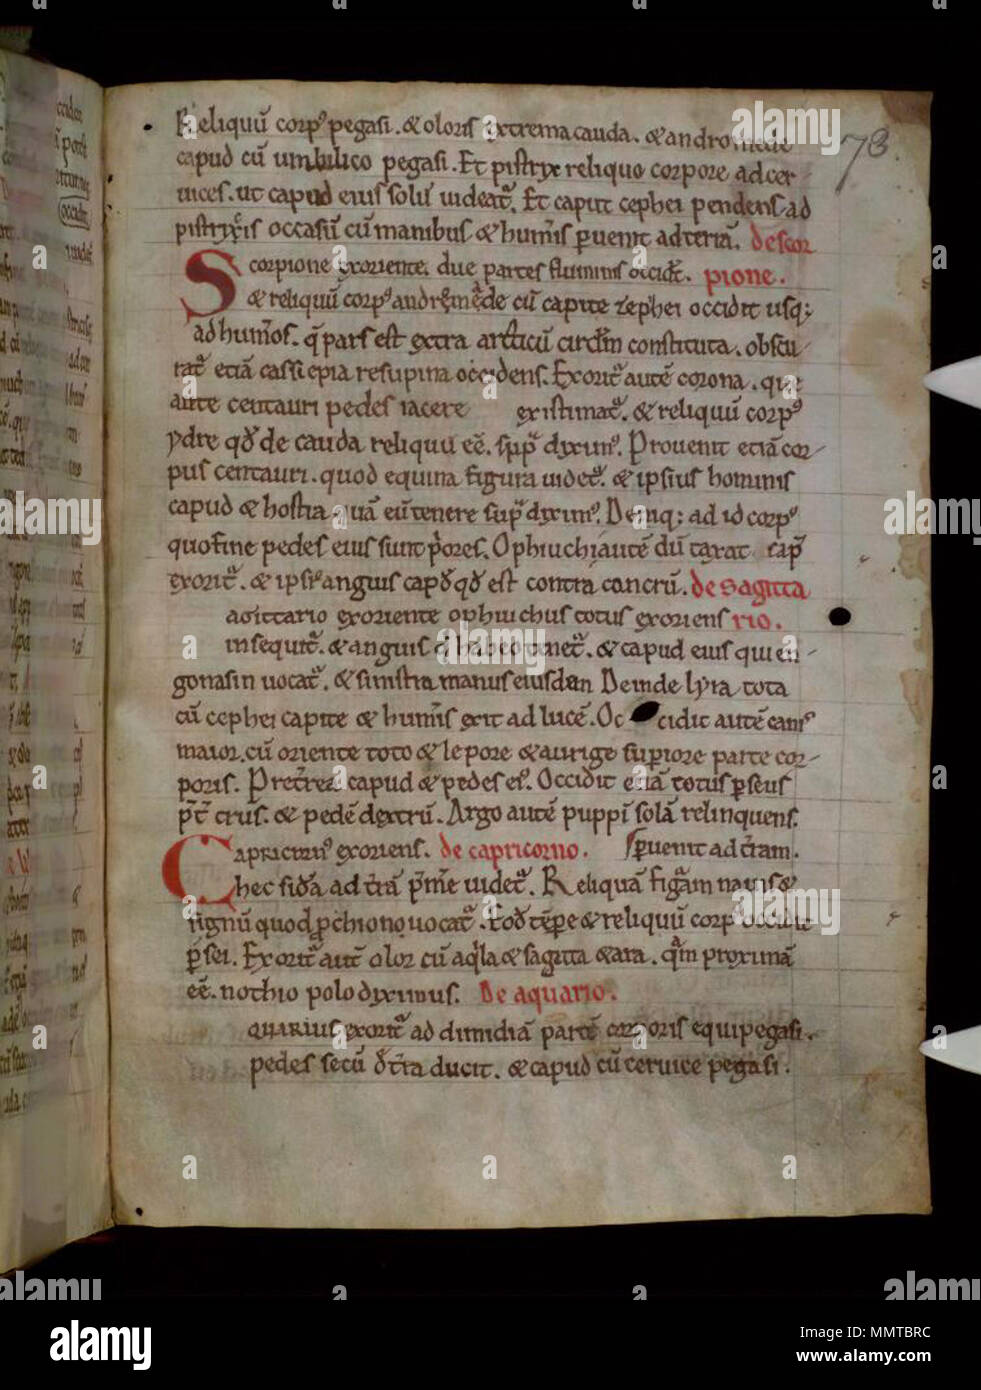 Reliquū corpꝰ pegasi. & oloris extrema cauda. & andromede
capud cū umbilico pegasi. Et pistryx reliquo corpore ad cer
uices. ut capud eius solū uideat᷑. Et caput cephei pendens ad
pistryxis occasū cū manibus & hum̄is ꝑuenit ad terrā. de scor
Scorpione exoriente. due partes fluminis occid̄t. pione.
& reliquū corpꝰ andromede cū capite cephei occidit usq;
ad hum̄os. q̄ pars est extra arcticū circłm constituta. obscu
rat᷑ etiā cassiepia resupina occidens. Exorit᷑ autē corona. que
ante centauri pedes iacere existimat᷑. & reliquū corpꝰ
ydre qđ de cauda reliquū eē. sup᷑ diximꝰ. Prouenit etiā cor
pus centauri. quod equina figura uidet᷑. & ipsius hominis
capud & hostia quā eū tenere sup᷑ dyximꝰ. Deniq; ad id corpꝰ
pedes eius sunt p̄ores. Ophiuchi autē dū taxat cap᷑
exorit᷑. & ipsiꝰ anguis capđ qđ est contra cancrū. de Sagitta
agittario exoriente ophiuchus totus exoriens rio.
insequit᷑. & anguis q̄ habeo tenet᷑. & capud eius qui en
gonasin uocat᷑. & sinistra manus eiusdam Deinde lyra tota
cū cephei capite & hum̄is exit ad lucē. Oc cidit autē canis
maior. cū oriente toto & lepore & aurige sup̄iore parte cor
poris. Pret̄rea capud & pedes eꝰ. Occidit etiā totus ꝑseus
p̄t crus. & pedē dextrū. Argo autē puppī solā relinquens.
Capricornꝰ exoriens. de capricorno. ꝑuenit ad t̄ram.
hec sid̄a ad t̄rā p̄me uidet᷑. Reliquā fig᷑am nauis &
signū quod p̄chiono uocat᷑. Eođ tēp̄e & reliquū corpꝰ occidit
ꝑsei. Exorit᷑ aut̄ olor cū aq̄la & sagitta & ara. q̄m proximā
eē. nothio polo dyximus. De aquario.
quarius exorit᷑ ad dimidiā partē corporis equi pegasi.
pedes secū đt̄ra ducit. & capud cū ceruice pegasi.
78.
alamy
Image ID: MMTBRC
www.alamy.com